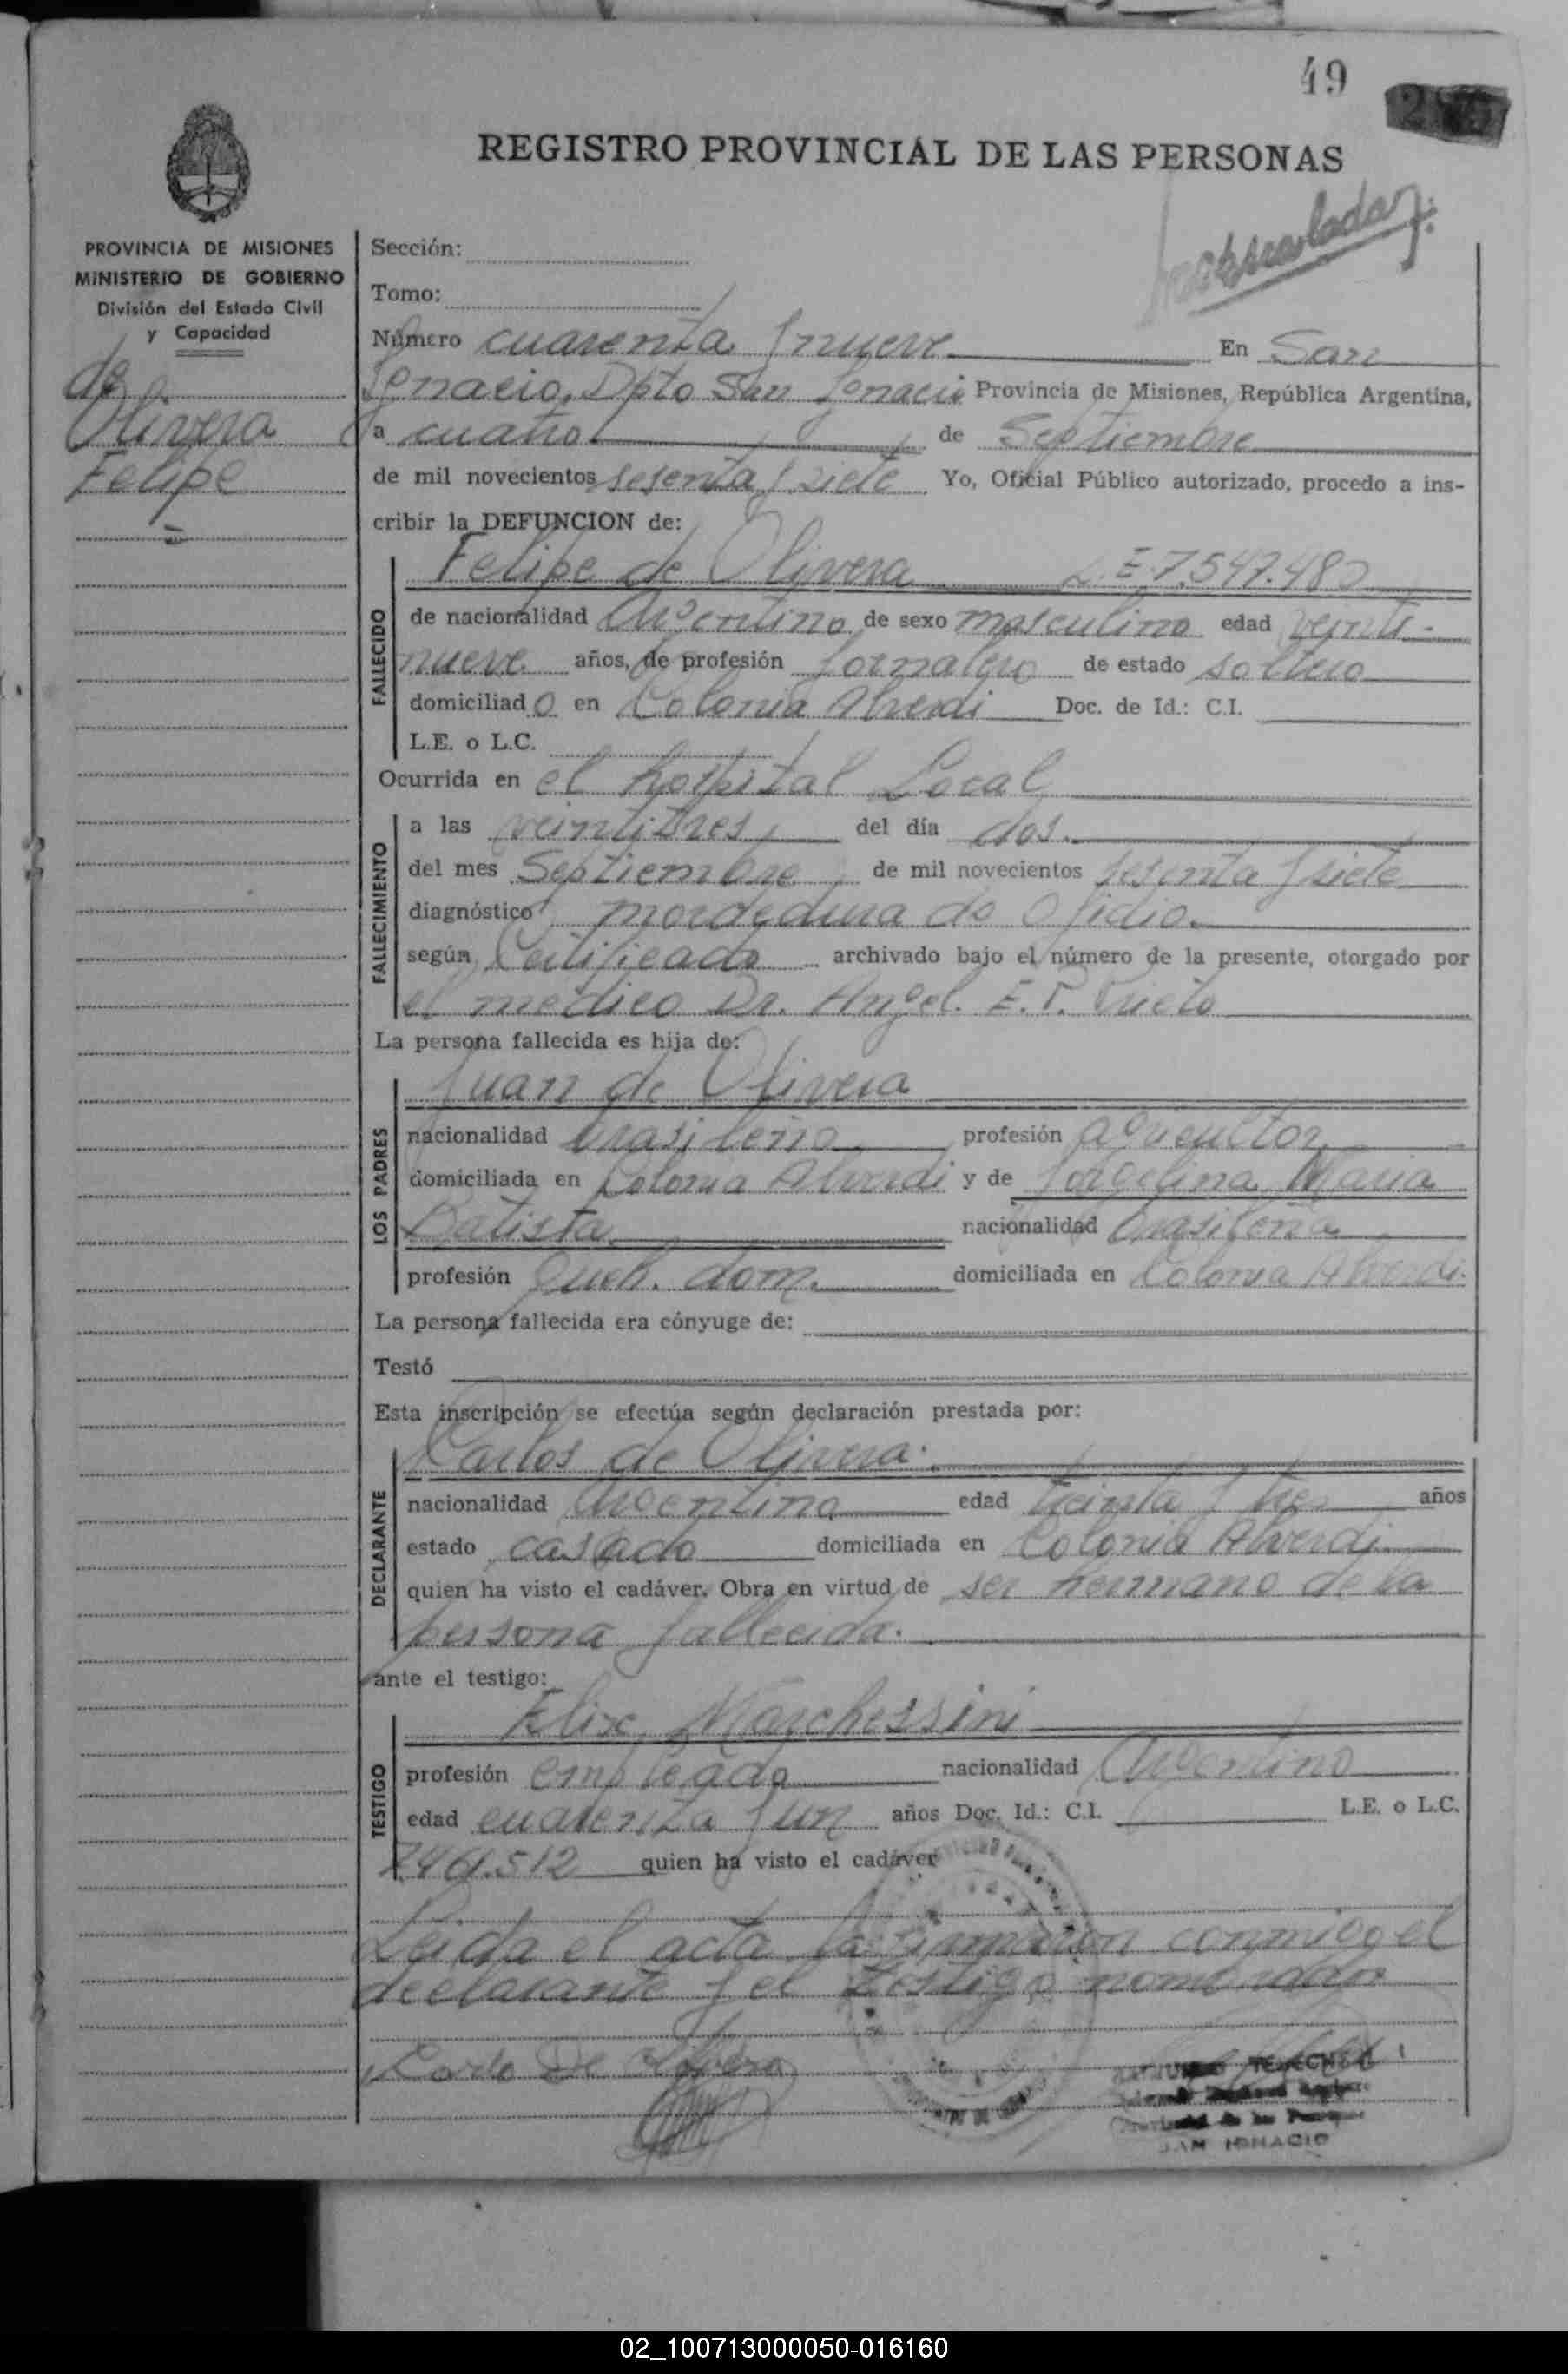 49
REGISTRO PROVINCIAL DE LAS PERSONAS
PROVINCIA DE MISIONES
MINISTERIO DE GOBIERNO
División del Estado Civil
y Capacidad
de
Olivera
Felipe
Sección:
Tomo:
Número cuarenta y nueve En San
Ignacio, Dpto San Ignacio Provincia de Misiones, República Argentina,
a cuatro de Septiembre
de mil novecientos sesenta y siete Yo, Oficial Público autorizado, procedo a ins-
cribir la DEFUNCION de:
Felipe de Olivera L.E. 7.547.482
FALLECIDO
de nacionalidad Argentino de sexo masculino edad veinti-
nueve años, de profesión Jornalero de estado soltero
domiciliado en Colonia Alverdi Doc. de Id.: C.I.
L.E. o L.C.
Ocurrida en el hospital Local
FALLECIMIENTO
a las veintitres, del día dos.
del mes Septiembre de mil novecientos sesenta y siete
diagnóstico mordedura de Ofidio.
según Certificado archivado bajo el número de la presente, otorgado por
el medico Dr. Angel. E. P. Prieto
La persona fallecida es hija de:
Juan de Olivera
LOS PADRES
nacionalidad brasileño profesión agricultor
domiciliada en Colonia Alverdi y de Jorgelina Maria
Batista nacionalidad brasileña
profesión Queh. dom. domiciliada en Colonia Alverdi.
La persona fallecida era cónyuge de:
Testó
Esta inscripción se efectúa según declaración prestada por:
Carlos de Olivera.
DECLARANTE
nacionalidad Argentino edad treinta y tres años
estado casado domiciliada en Colonia Alverdi
quien ha visto el cadáver. Obra en virtud de ser hermano de la
persona fallecida.
ante el testigo:
Felix Marchessini
TESTIGO
profesión empleado nacionalidad Argentino
edad cuarenta y un años Doc. Id.: C.I. L.E. o L.C.
7.461.512 quien ha visto el cadáver
Leida el acta la firmaron conmigo el
declarante y el testigo nombrado
Carlo De Olivera
SAN IGNACIO
02_100713000050-016160